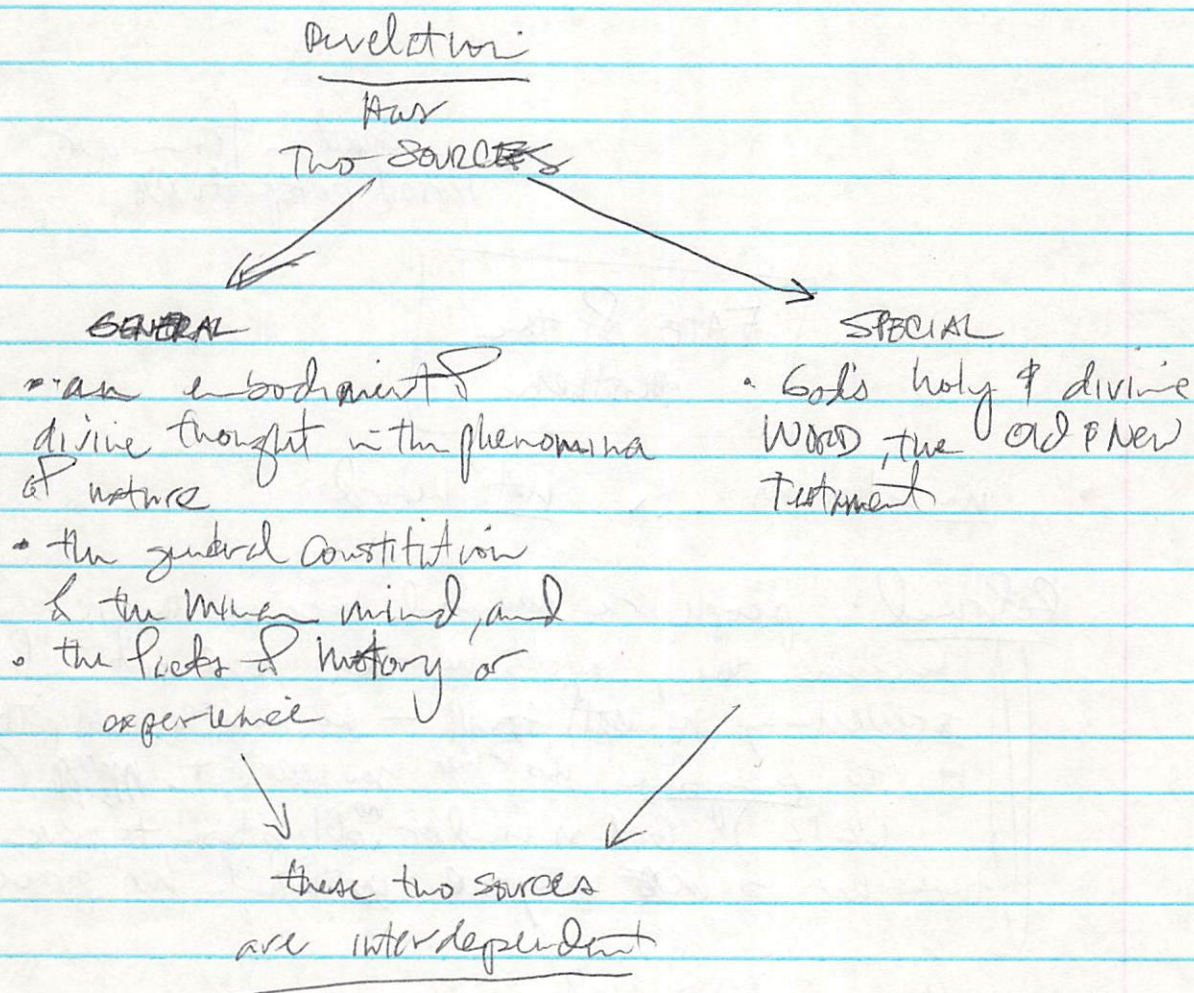 Revelation
Has
Two SOURCES
GENERAL
• an embodiment of
divine thought in the phenomina
of nature
• the general constitution
of the human mind, and
• the facts of history or
experience
SPECIAL
• God's holy & divine
WORD, the Old & New
Testament
these two sources
are interdependent